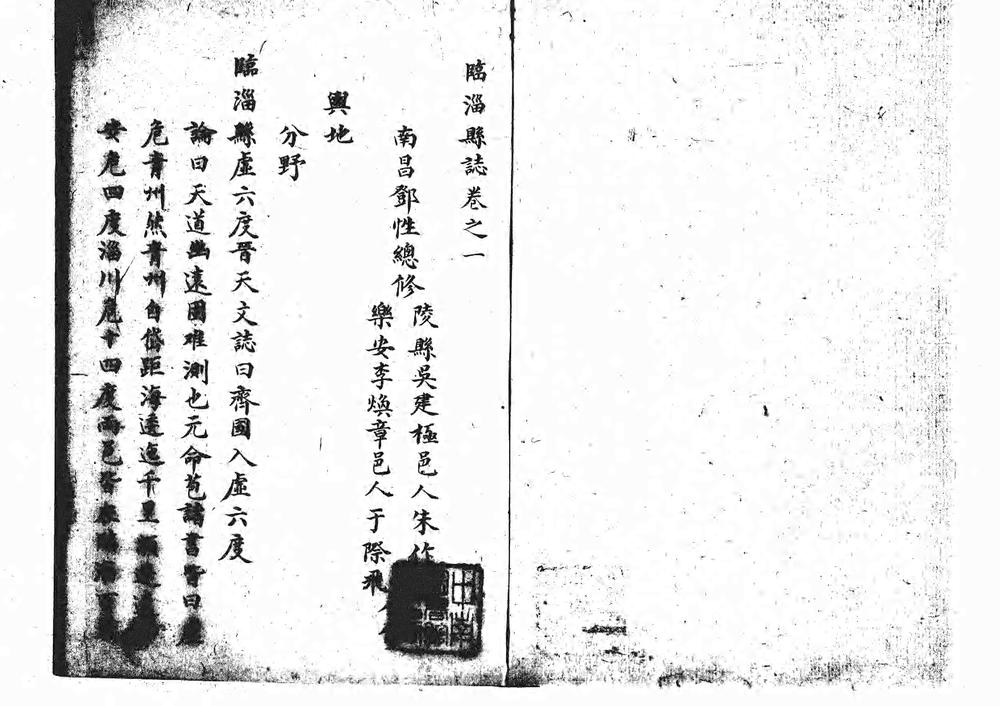 臨淄縣誌卷之一
南昌鄧性總修
陵縣吳建極邑人朱作
樂安李煥章邑人于際飛
輿地
分野
臨淄縣虛六度晉天文誌曰齊國入虛六度
論曰天道幽遠固难測也元命苞諸書皆曰虛
危青州然青州自岱距海逶迤千里
安危四度淄川危十四度兩邑皆